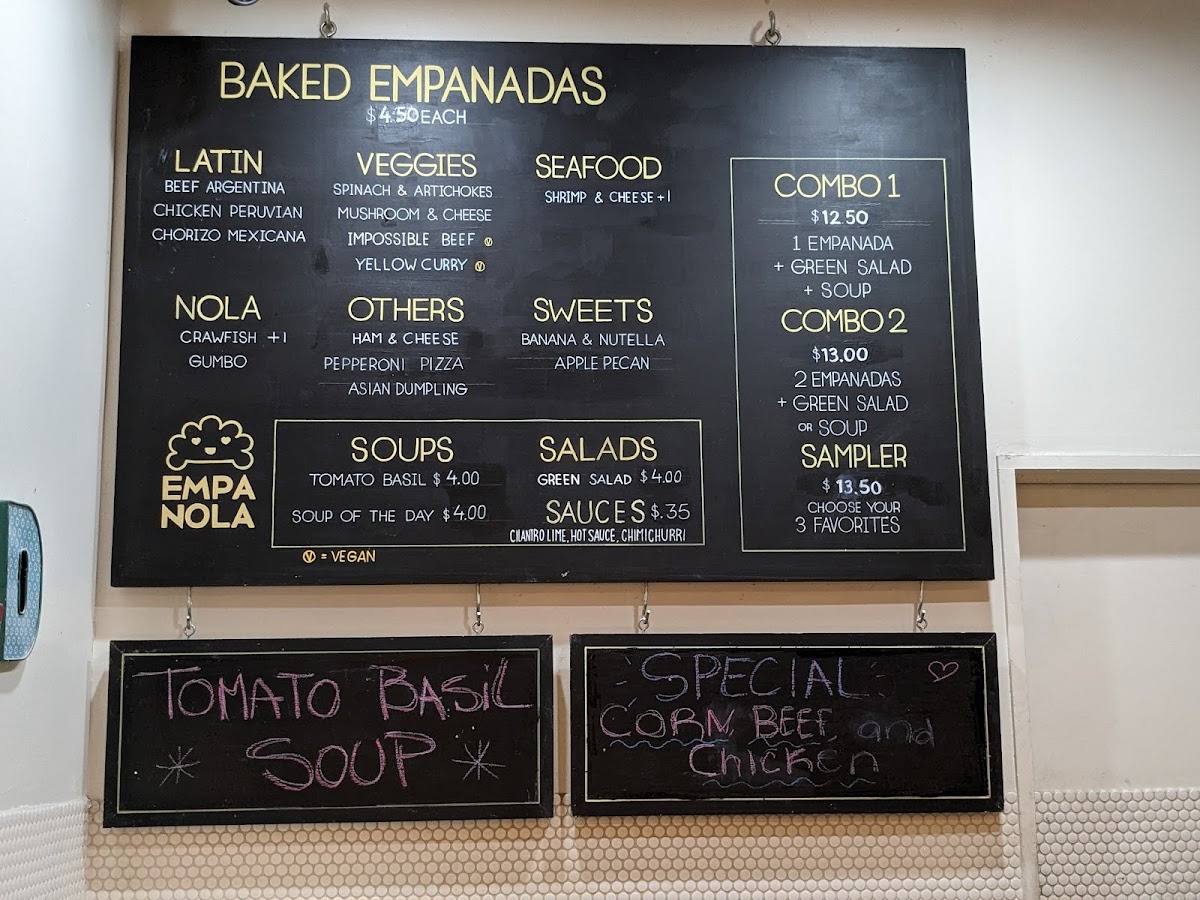 BAKED EMPANADAS
$4.50 EACH
LATIN
BEEF ARGENTINA
CHICKEN PERUVIAN
CHORIZO MEXICANA
VEGGIES
SPINACH & ARTICHOKES
MUSHROOM & CHEESE
IMPOSSIBLE BEEF V
YELLOW CURRY V
SEAFOOD
SHRIMP & CHEESE +1
NOLA
CRAWFISH +1
GUMBO
OTHERS
HAM & CHEESE
PEPPERONI PIZZA
ASIAN DUMPLING
SWEETS
BANANA & NUTELLA
APPLE PECAN
COMBO 1
$12.50
1 EMPANADA
+ GREEN SALAD
+ SOUP
COMBO 2
$13.00
2 EMPANADAS
+ GREEN SALAD
OR SOUP
SAMPLER
$13.50
CHOOSE YOUR
3 FAVORITES
EMPA
NOLA
SOUPS
TOMATO BASIL $4.00
SOUP OF THE DAY $4.00
SALADS
GREEN SALAD $4.00
SAUCES $.35
CILANTRO LIME, HOT SAUCE, CHIMICHURRI
V = VEGAN
TOMATO BASIL
SOUP
SPECIAL
CORN BEEF and
Chicken